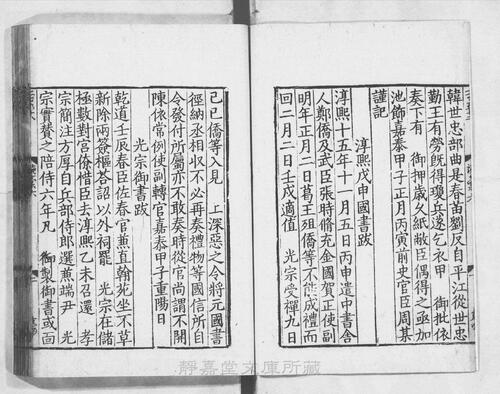 韓世忠部曲是春苗劉反自平江從世忠
勤王有勞既得瓊兵遂乞衣甲　御批依
奏下有　御押歲久紙敝臣偶得之亟加
池飾嘉泰甲子正月丙寅前史官臣周某
謹記
淳熙戊申國書跋
淳熙十五年十一月五日丙申遣中書舍
人鄭僑及武臣張時脩充金國賀正使副
明年正月二日葛王殂僑等不能成禮而
回二月二日壬戌適值　光宗受禪九日
己巳僑等入見　上深惡之令將元國書
徑納丞相収不必再奏禮物等國信所自
令發付所屬亦不敢奏時從官尚謂不關
陳依常例使副轉官嘉泰甲子重陽日
光宗御書跋
乾道壬辰春臣佐春官兼直翰苑坐不草
新除兩簽樞荅詔以外祠罷　光宗在儲
極數對宮僚惜臣去淳熙乙未召還　孝
宗簡注方厚自兵部侍郎選兼端尹　光
宗實贊之陪侍六年凡　御製御書或面
靜嘉堂文庫所藏